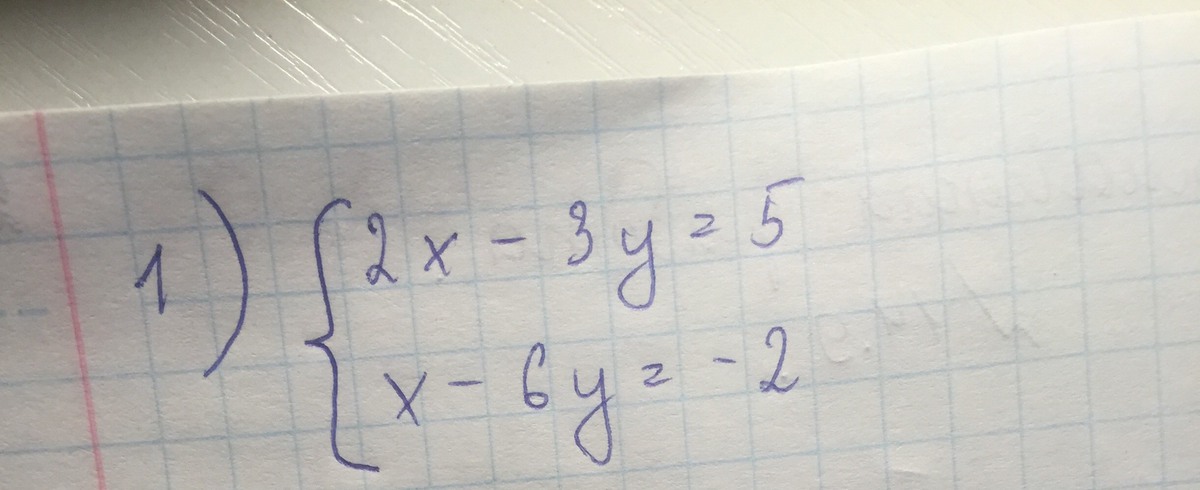 1) { 2x - 3y = 5
x - 6y = -2